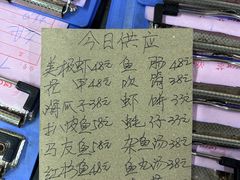 今日供应
美极虾48元 鱼 肠48元
花 甲48元 吹 筒38元
濑瓜子38元 虾 饼33元
扒皮鱼58元 蚝 仔33元
马友鱼58元 杂鱼汤38元
红杉鱼48元 鱼丸汤38元